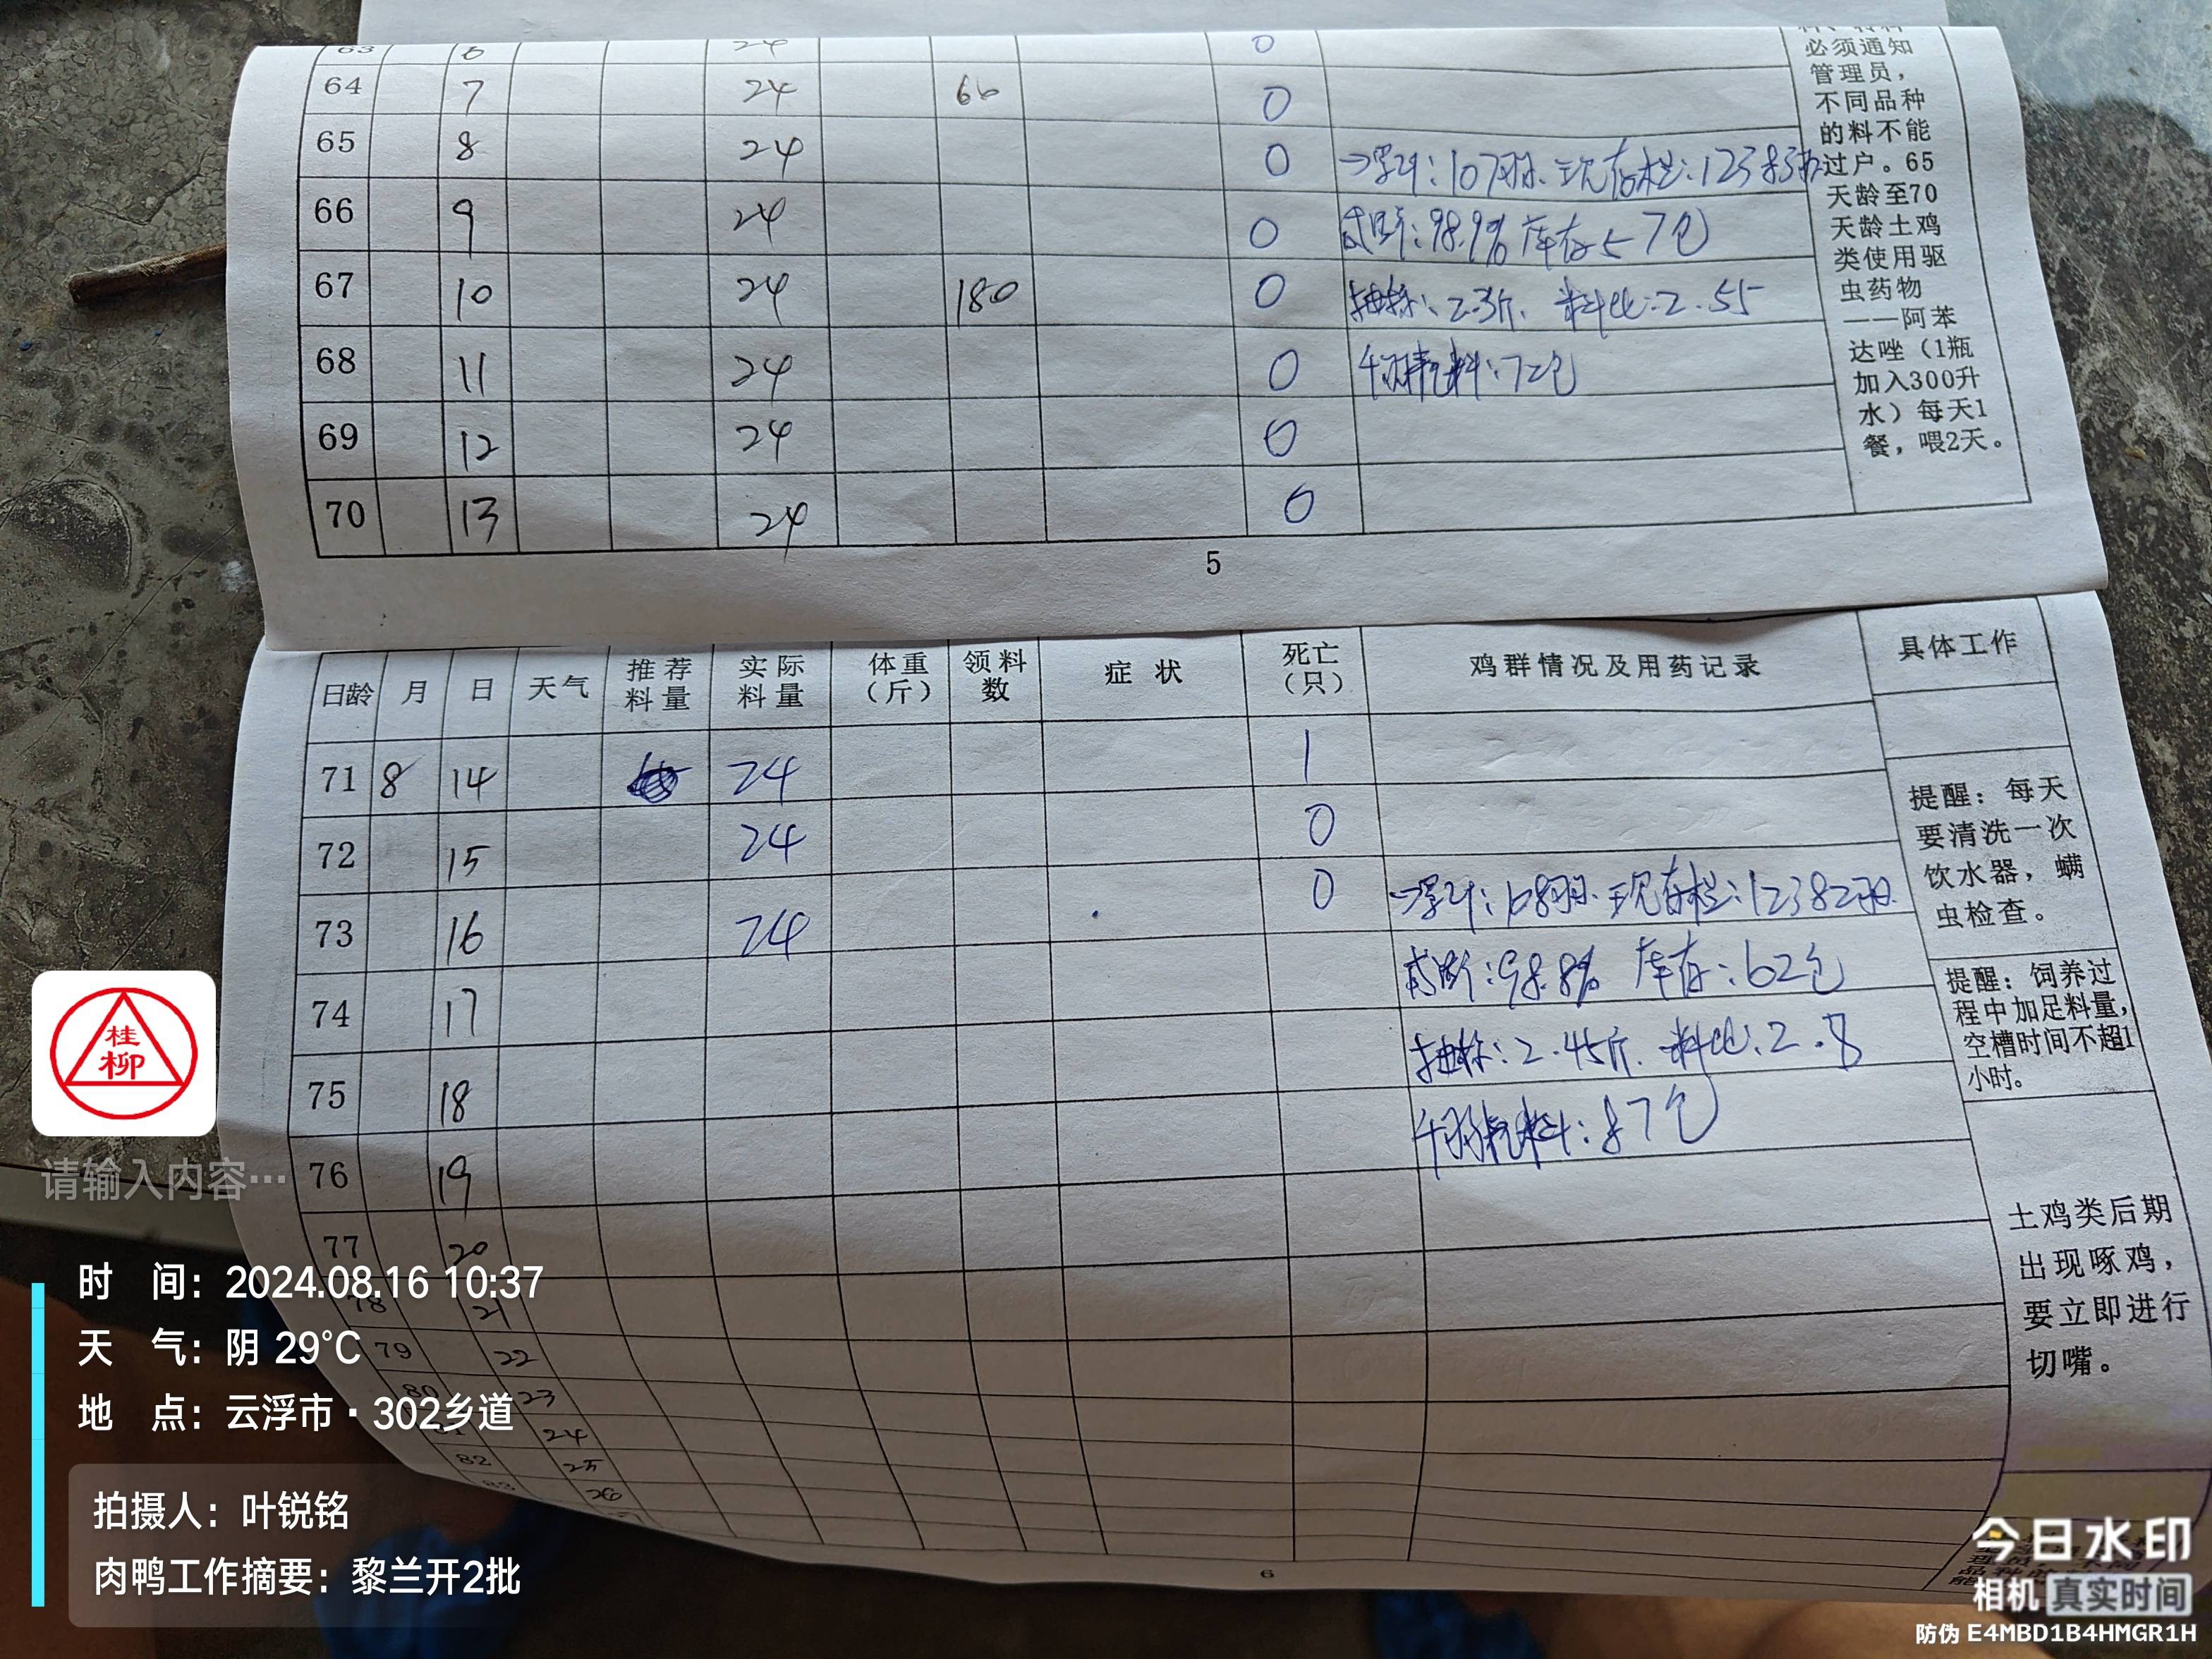 63 6 24 0
64 7 24 66 0
65 8 24 0 累计:107羽.现存栏:12383羽
66 9 24 0 成活:98.9% 库存57包
67 10 24 180 0 抽称:2.3斤. 料比:2.55
68 11 24 0 千羽耗料:72包
69 12 24 0
70 13 24 0
必须通知
管理员,
不同品种
的料不能
过户。65
天龄至70
天龄土鸡
类使用驱
虫药物
——阿苯
达唑(1瓶
加入300升
水)每天1
餐,喂2天。
5
日龄 月 日 天气 推荐料量 实际料量 体重(斤) 领料数 症状 死亡(只) 鸡群情况及用药记录 具体工作
71 8 14 24 1
72 15 24 0
73 16 24 0 累计:108羽.现存栏:12382羽.
74 17 成活:98.8% 库存:62包
75 18 抽称:2.45斤. 料比:2.8
76 19 千羽耗料:87包
77 20
78 21
79 22
80 23
24
82 25
83 26
提醒:每天
要清洗一次
饮水器,螨
虫检查。
提醒:饲养过
程中加足料量,
空槽时间不超1
小时。
土鸡类后期
出现啄鸡,
要立即进行
切嘴。
6
桂
柳
请输入内容…
时 间:2024.08.16 10:37
天 气:阴 29°C
地 点:云浮市·302乡道
拍摄人:叶锐铭
肉鸭工作摘要:黎兰开2批
今日水印
相机 真实时间
防伪 E4MBD1B4HMGR1H